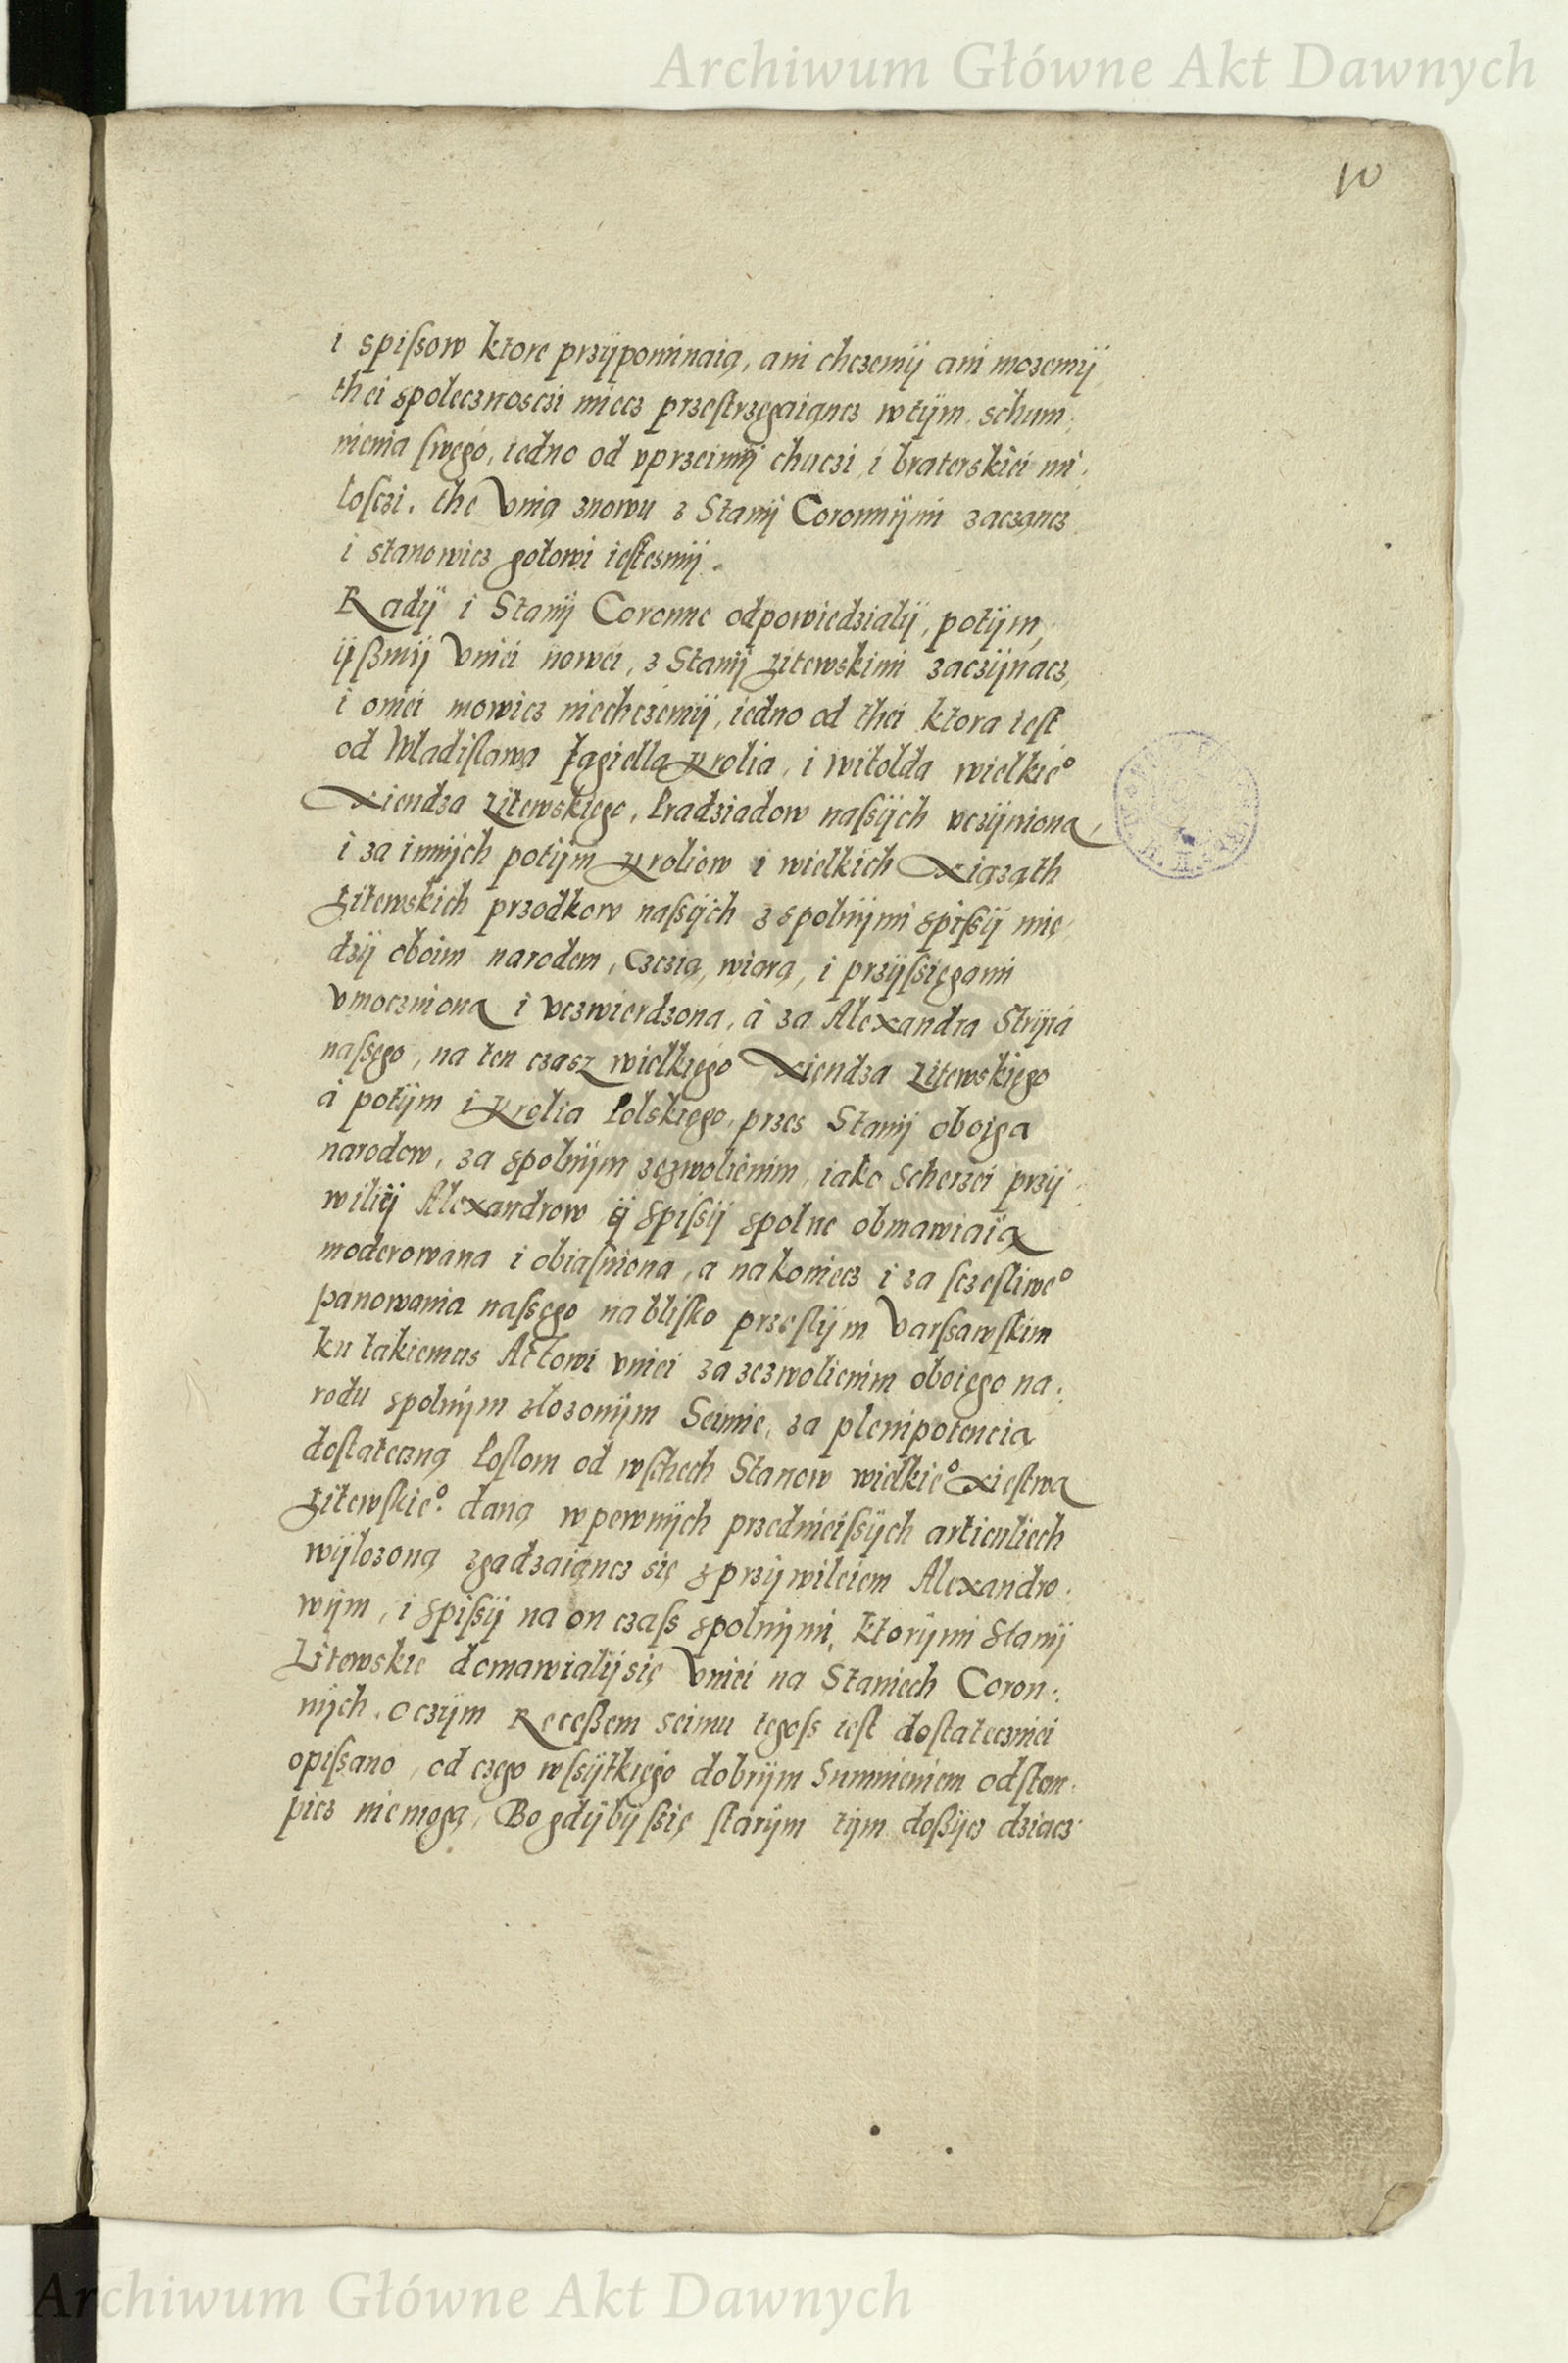 Archiwum Główne Akt Dawnych
10
i spiſsow ktore przÿpominaią, ani chczemÿ ani mozemÿ
thei spolecznosczi miecz przeſtrzęgaiącz wtÿm. schum:
nienia ſwego, iedno od vprzeimÿ chuczi, i braterskiei mi:
loſczi. the Vnią znowu z Stanÿ Coronnÿmi zacząncz
i stanowicz gotowi ieſtesmÿ.
Radÿ i Stanÿ Coronne odpowiedzialÿ, potÿm,
ÿßmÿ Vniei nowei, z Stanÿ Litewskimi zaczÿnacz,
i oniei mowicz niechczemÿ, iedno od thei ktora ieſt
od Wladiſlawa Jagiella Krolia, i witolda wielkie°
Xiendza Litewskiego, Pradziadow naſsÿch vczÿniona,
i za innÿch potÿm Kroliow i wielkich Xiąząth
Litewskich przodkow naſsÿch z spolnÿmi spiſsÿ mię
dzÿ oboim narodem, Czczią, wiarą, i przÿſsięgami
vmoczniona i vczwierdzona, à za Alexandra Strÿia
naſsęgo, na ten czasz wielkięgo Xięndza Litewskięgo
à potÿm i Krolia Polskięgo, przes Stanÿ oboiga
narodow, za spolnÿm zęzwolienim, iako scherzei przÿ
wiliÿ Alexandrow ÿ Spiſsÿ spolne obmawiaią
moderowana i obiaſniona, a nakoniecz i za ſczeſliwe°
panowania naſsęgo nabliſko przeſlÿm Varſsawſkim
ku takiemus Acłowi vniei za zezwolienim oboięgo na:
rodu spolnÿm złozonÿm Seimie, za plenipotencia
doſtateczną Poſlom od wſchech Stanow wielkie° Xieſtwa
Litewſkie°. daną wpewnÿch przednieiſsÿch articuliech
wÿlozoną zgadzaiącz się z przÿwileiem Alexandro:
wÿm, i Spiſsÿ na on czaſs spolnÿmi, ktorÿmi Stanÿ
Litewskie domawialÿsię Vniei na Staniech Coron:
nÿch. oczÿm Receßem seimu tegoſs ieſt doſtatecżniei
opiſsano, od czego wſsÿtkięgo dobrÿm Summieniem odſtem:
picz niemogą, Bo gdÿbÿ ſsię ſtarÿm tÿm doßÿcz dziacz
Archiwum Główne Akt Dawnych